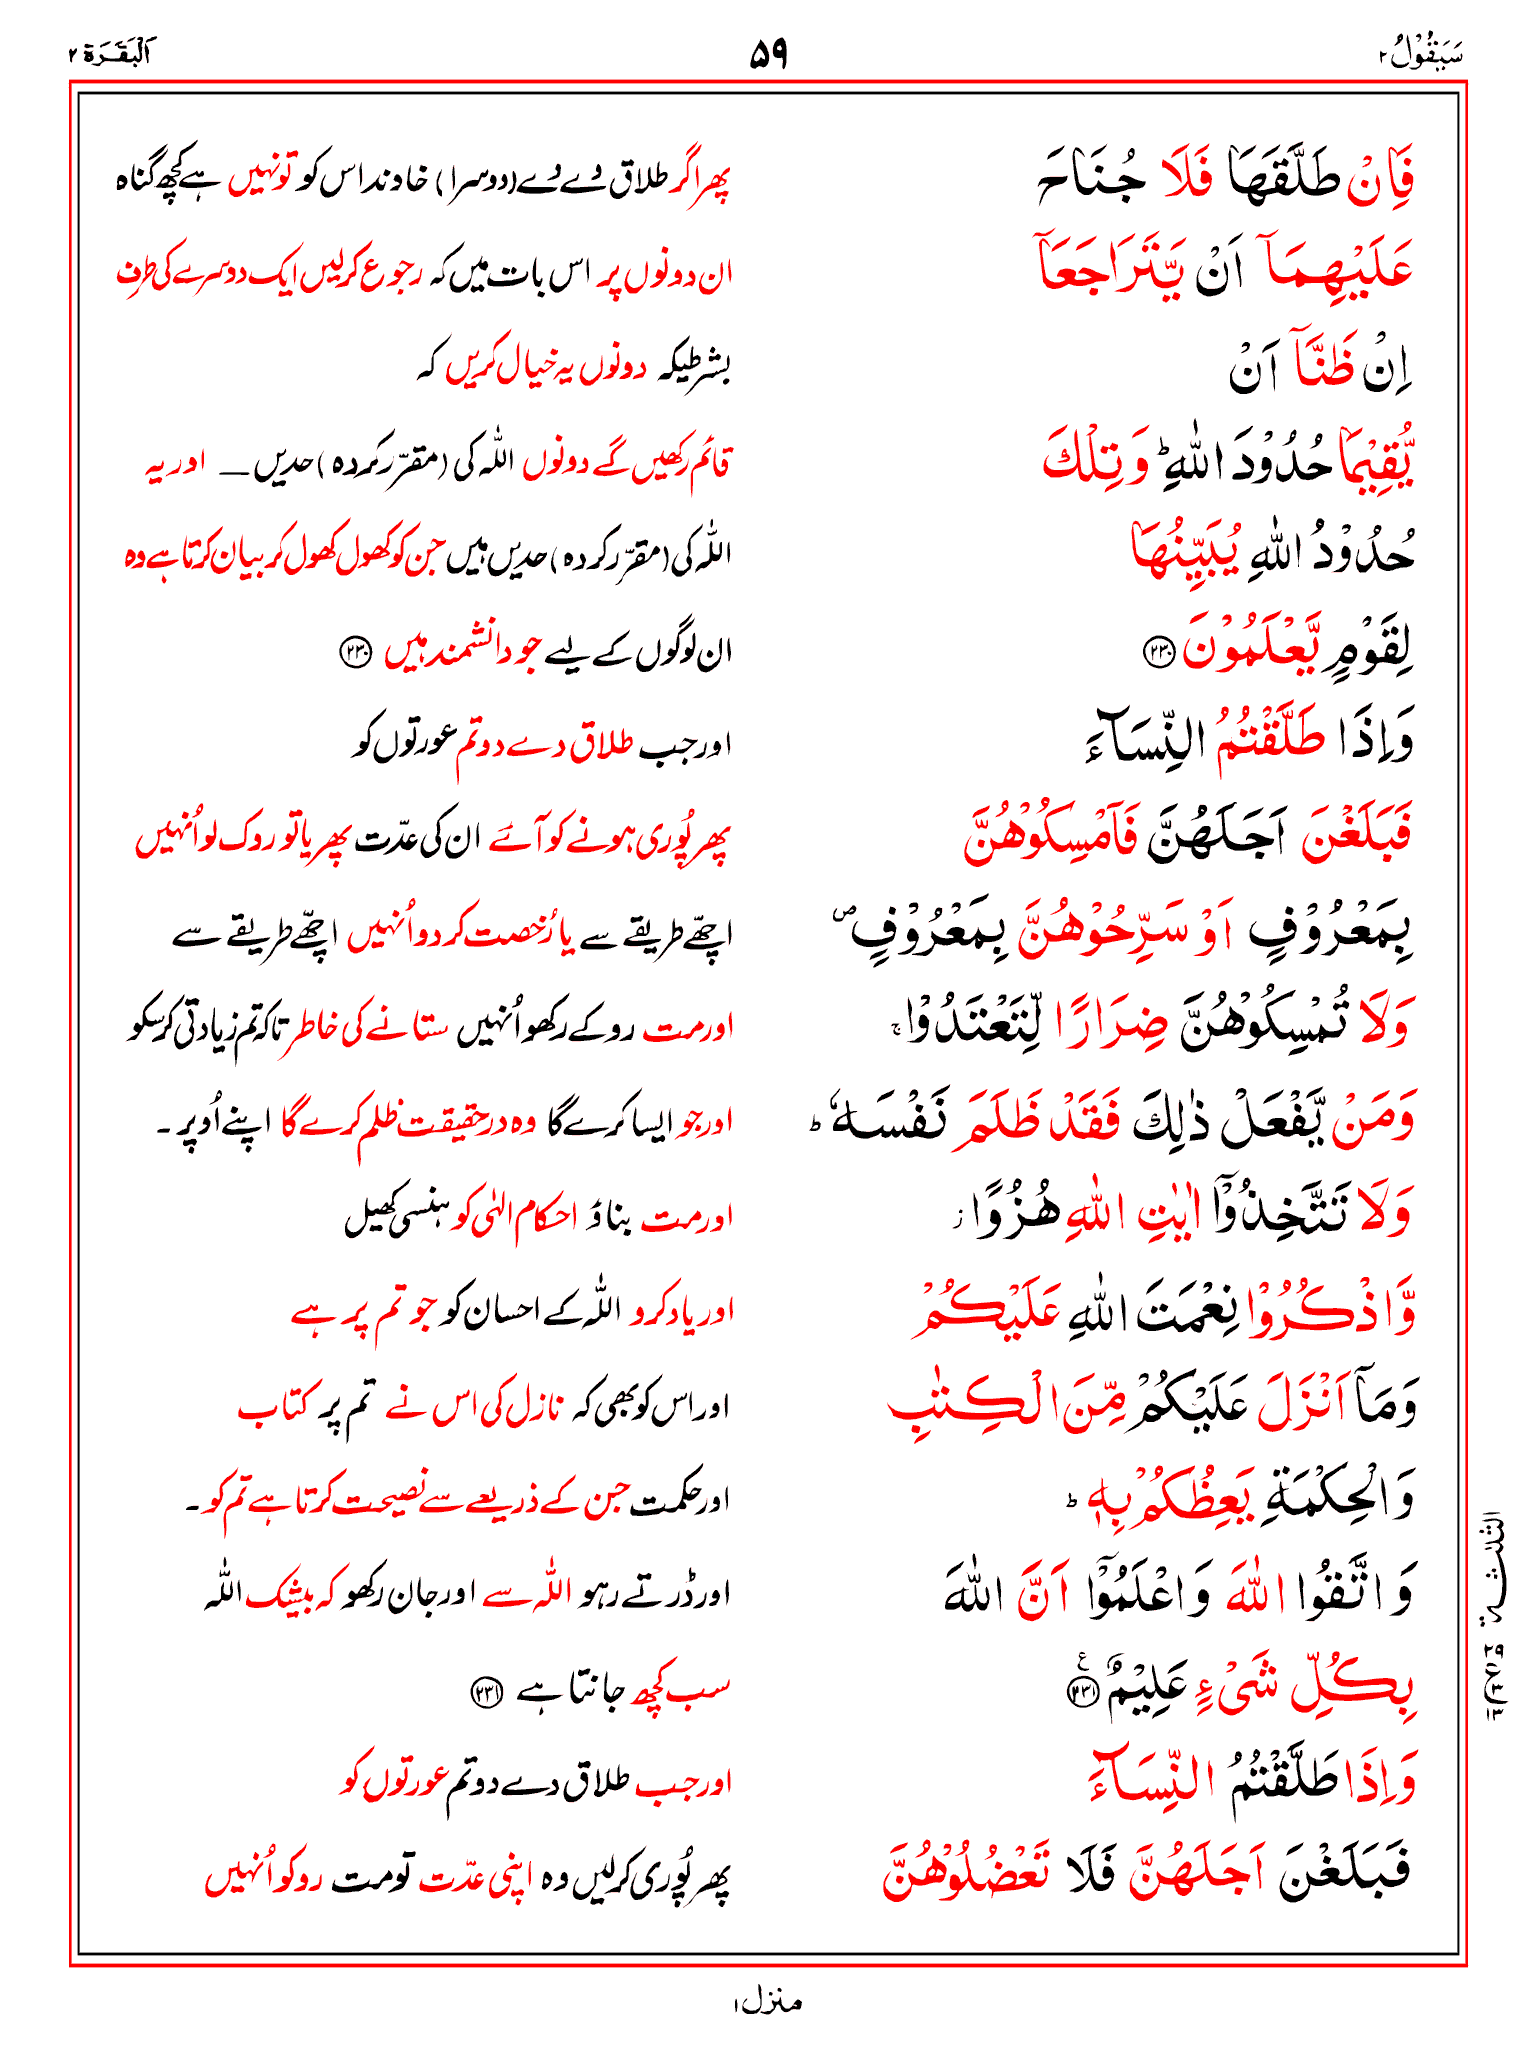 سَيَقُوْلُ ۲
۵۹
اَلْبَقَرَة ۲
فَاِنْ طَلَّقَهَا فَلَا جُنَاحَ
پھر اگر طلاق دے دے (دوسرا) خاوند اس کو تو نہیں ہے کچھ گناہ
عَلَيْهِمَآ اَنْ يَّتَرَاجَعَآ
ان دونوں پر اس بات میں کہ رجوع کرلیں ایک دوسرے کی طرف
اِنْ ظَنَّآ اَنْ
بشرطیکہ دونوں یہ خیال کریں کہ
يُّقِيْمَا حُدُوْدَ اللّٰهِ ؕ وَتِلْكَ
قائم رکھیں گے دونوں اللہ کی (مقرّر کردہ) حدیں ـــ اور یہ
حُدُوْدُ اللّٰهِ يُبَيِّنُهَا
اللہ کی (مقرّر کردہ) حدیں ہیں جن کو کھول کھول کر بیان کرتا ہے وہ
لِقَوْمٍ يَّعْلَمُوْنَ ﴿۲۳۰﴾
ان لوگوں کے لیے جو دانشمند ہیں ﴿۲۳۰﴾
وَاِذَا طَلَّقْتُمُ النِّسَآءَ
اور جب طلاق دے دو تم عورتوں کو
فَبَلَغْنَ اَجَلَهُنَّ فَاَمْسِكُوْهُنَّ
پھر پُوری ہونے کو آئے ان کی عدّت پھر یا تو روک لو اُنہیں
بِمَعْرُوْفٍ اَوْ سَرِّحُوْهُنَّ بِمَعْرُوْفٍ ۪
اچھّے طریقے سے یا رُخصت کر دو اُنہیں اچھّے طریقے سے
وَلَا تُمْسِكُوْهُنَّ ضِرَارًا لِّتَعْتَدُوْا ۚ
اور مت روکے رکھو اُنہیں ستانے کی خاطر تاکہ تم زیادتی کر سکو
وَمَنْ يَّفْعَلْ ذٰلِكَ فَقَدْ ظَلَمَ نَفْسَهٗ ؕ
اور جو ایسا کرے گا وہ درحقیقت ظلم کرے گا اپنے اُوپر ۔
وَلَا تَتَّخِذُوْٓا اٰيٰتِ اللّٰهِ هُزُوًا ز
اور مت بناؤ احکام الٰہی کو ہنسی کھیل
وَّاذْكُرُوْا نِعْمَتَ اللّٰهِ عَلَيْكُمْ
اور یاد کرو اللہ کے احسان کو جو تم پر ہے
وَمَآ اَنْزَلَ عَلَيْكُمْ مِّنَ الْكِتٰبِ
اور اس کو بھی کہ نازل کی اس نے تم پر کتاب
وَالْحِكْمَةِ يَعِظُكُمْ بِهٖ ؕ
اور حکمت جن کے ذریعے سے نصیحت کرتا ہے تم کو ۔
وَاتَّقُوا اللّٰهَ وَاعْلَمُوْٓا اَنَّ اللّٰهَ
اور ڈرتے رہو اللہ سے اور جان رکھو کہ بیشک اللہ
بِكُلِّ شَيْءٍ عَلِيْمٌ ﴿۲۳۱﴾ ع
سب کچھ جانتا ہے ﴿۲۳۱﴾
وَاِذَا طَلَّقْتُمُ النِّسَآءَ
اور جب طلاق دے دو تم عورتوں کو
فَبَلَغْنَ اَجَلَهُنَّ فَلَا تَعْضُلُوْهُنَّ
پھر پُوری کرلیں وہ اپنی عدّت تو مت روکو اُنہیں
الثلٰثة
منزل ۱